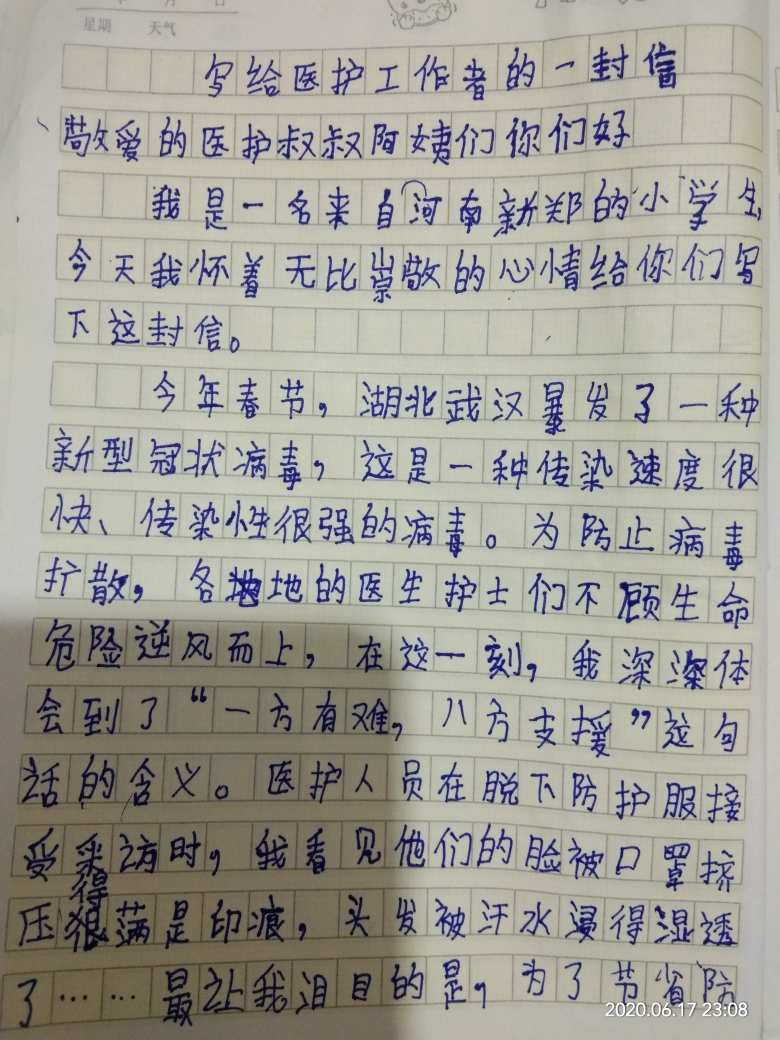 星期 天气
写给医护工作者的一封信
敬爱的医护叔叔阿姨们你们好
我是一名来自河南新郑的小学生,
今天我怀着无比崇敬的心情给你们写
下这封信。
今年春节，湖北武汉暴发了一种
新型冠状病毒，这是一种传染速度很
快、传染性很强的病毒。为防止病毒
扩散，各地地的医生护士们不顾生命
危险逆风而上，在这一刻，我深深体
会到了“一方有难，八方支援”这句
话的含义。医护人员在脱下防护服接
受采访时，我看见他们的脸被口罩挤
得
压狠满是印痕，头发被汗水浸得湿透
了……最让我泪目的是，为了节省防
2020.06.17 23:08